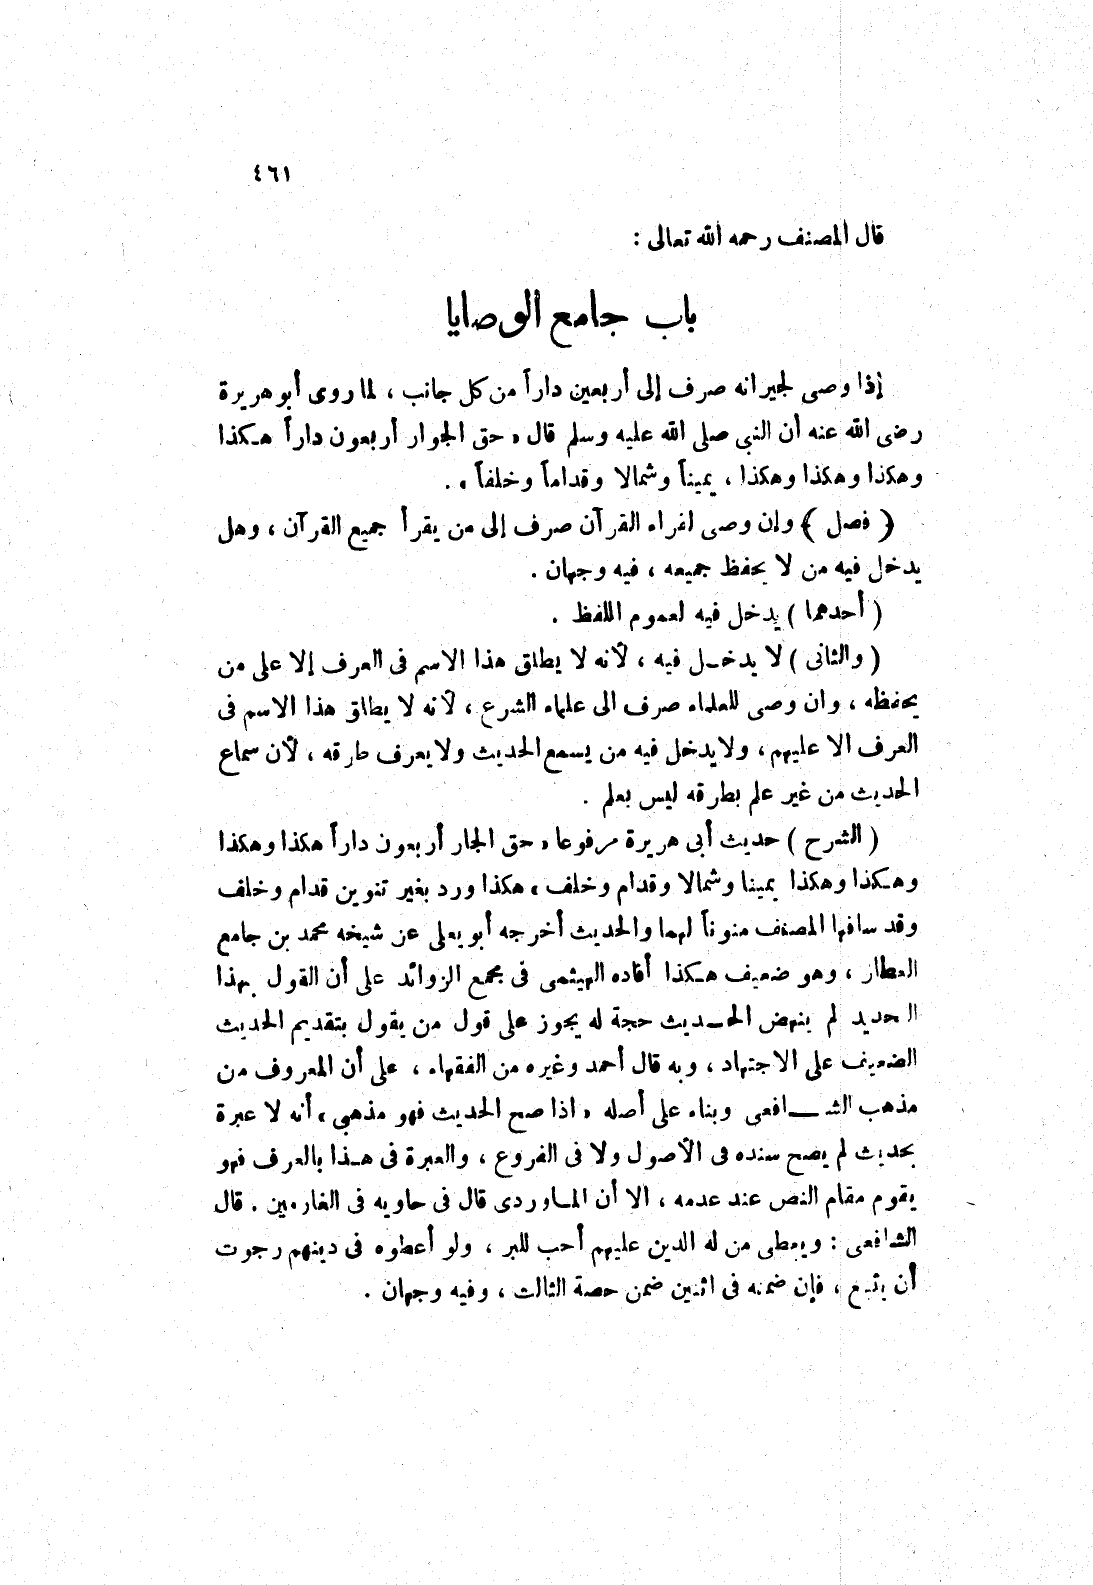 ٤٦١
قال المصنف رحمه الله تعالى :
باب جامع الوصايا
إذا وصى لجيرانه صرف إلى أربعين داراً من كل جانب ، لما روى أبو هريرة
رضى الله عنه أن النبى صلى الله عليه وسلم قال « حق الجوار أربعون داراً هكذا
وهكذا وهكذا وهكذا ، يميناً وشمالا وقداماً وخلفاً » .
( فصل ) وإن وصى لقراء القرآن صرف إلى من يقرأ جميع القرآن ، وهل
يدخل فيه من لا يحفظ جميعه ، فيه وجهان .
( أحدهما ) يدخل فيه لعموم اللفظ .
( والثانى ) لا يدخل فيه ، لأنه لا يطلق هذا الاسم فى العرف إلا على من
يحفظه ، وان وصى للعلماء صرف الى علماء الشرع ، لأنه لا يطلق هذا الاسم فى
العرف الا عليهم ، ولا يدخل فيه من يسمع الحديث ولا يعرف طرقه ، لأن سماع
الحديث من غير علم بطرقه ليس بعلم .
( الشرح ) حديث أبى هريرة مرفوعا « حق الجار أربعون داراً هكذا وهكذا
وهكذا وهكذا يمينا وشمالا وقدام وخلف » هكذا ورد بغير تنوين قدام وخلف
وقد ساقها المصنف منوناً لهما والحديث أخرجه أبو يعلى عن شيخه محمد بن جامع
العطار ، وهو ضعيف هكذا أفاده الهيثمى فى مجمع الزوائد على أن القول بهذا
الحديد لم ينهض الحديث حجة له يجوز على قول من يقول بتقديم الحديث
الضعيف على الاجتهاد ، وبه قال أحمد وغيره من الفقهاء ، على أن المعروف من
مذهب الشافعى وبناء على أصله « اذا صح الحديث فهو مذهبى » أنه لا عبرة
بحديث لم يصح سنده فى الأصول ولا فى الفروع ، والعبرة فى هذا بالعرف فهو
يقوم مقام النص عند عدمه ، الا أن الماوردى قال فى حاويه فى الغارمين . قال
الشافعى : ويعطى من له الدين عليهم أحب للبر ، ولو أعطوه فى دينهم رجوت
أن يتبع ، فإن ضمنه فى اثنين ضمن حصة الثالث ، وفيه وجهان .